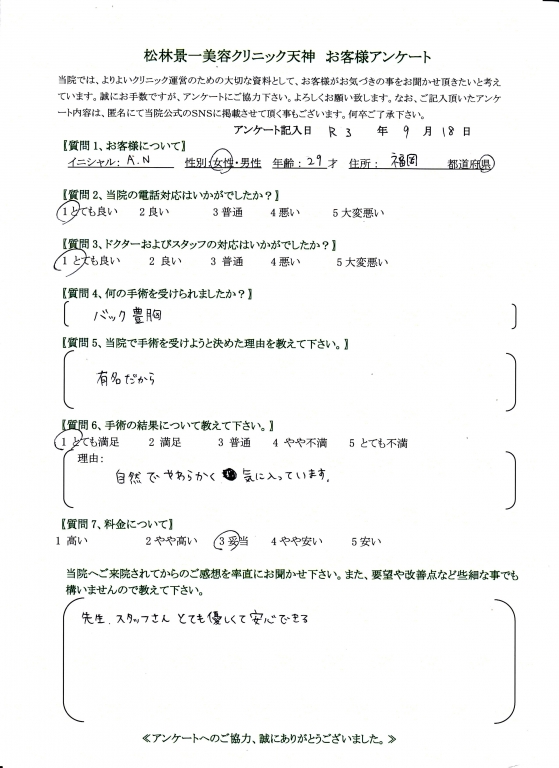 松林景一美容クリニック天神 お客様アンケート
当院では、よりよいクリニック運営のための大切な資料として、お客様がお気づきの事をお聞かせ頂きたいと考え
ています。誠にお手数ですが、アンケートにご協力下さい。よろしくお願い致します。なお、ご記入頂いたアンケ
ート内容は、匿名にて当院公式のSNSに掲載させて頂く事もございます。何卒ご了承下さい。
アンケート記入日 R3 年 9 月 18 日
【質問1、お客様について】
イニシャル: A.N 性別:女性・男性 年齢:29才 住所: 福岡 都道府県
【質問2、当院の電話対応はいかがでしたか?】
1 とても良い 2 良い 3 普通 4 悪い 5 大変悪い
【質問3、ドクターおよびスタッフの対応はいかがでしたか?】
1 とても良い 2 良い 3 普通 4 悪い 5 大変悪い
【質問4、何の手術を受けられましたか?】
バック豊胸
【質問5、当院で手術を受けようと決めた理由を教えて下さい。】
有名だから
【質問6、手術の結果について教えて下さい。】
1 とても満足 2 満足 3 普通 4 やや不満 5 とても不満
理由:
自然でやわらかく 気に入っています。
【質問7、料金について】
1 高い 2 やや高い 3 妥当 4 やや安い 5 安い
当院へご来院されてからのご感想を率直にお聞かせ下さい。また、要望や改善点など些細な事でも
構いませんので教えて下さい。
先生、スタッフさん とても優しくて安心できる
≪アンケートへのご協力、誠にありがとうございました。≫